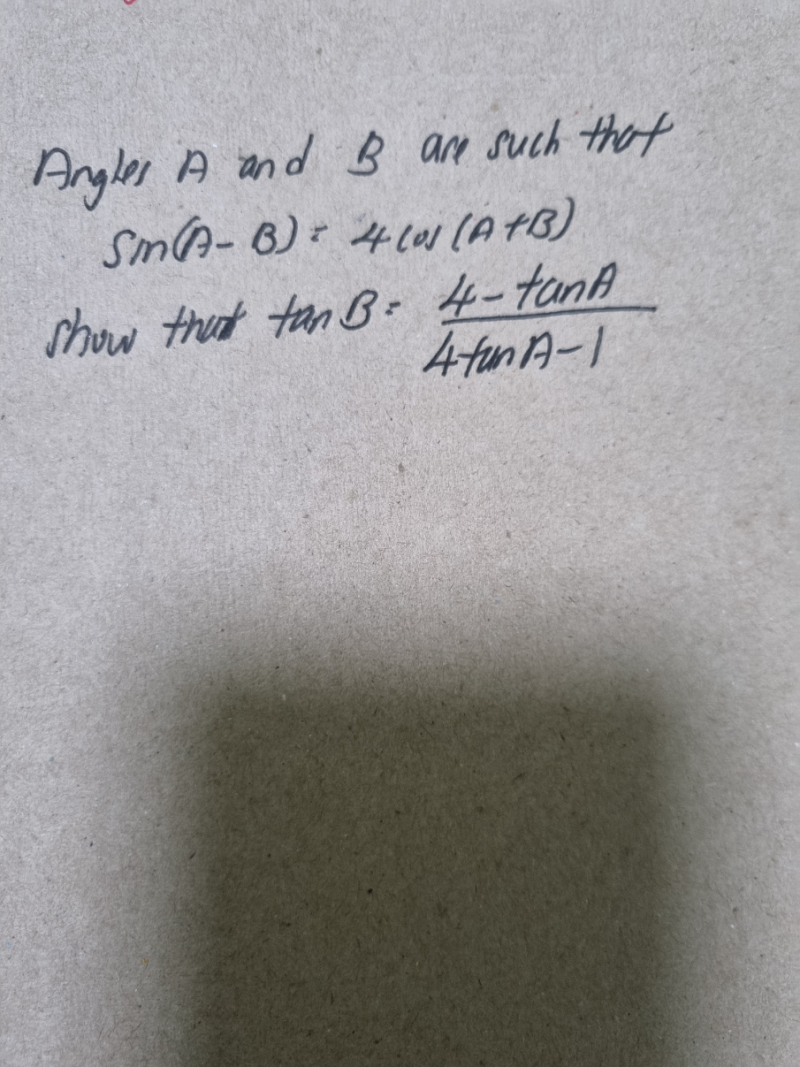 Angles A and B are such that
sin(A - B) = 4 cos (A + B)
show that tan B = \frac{4 - tan A}{4 tan A - 1}